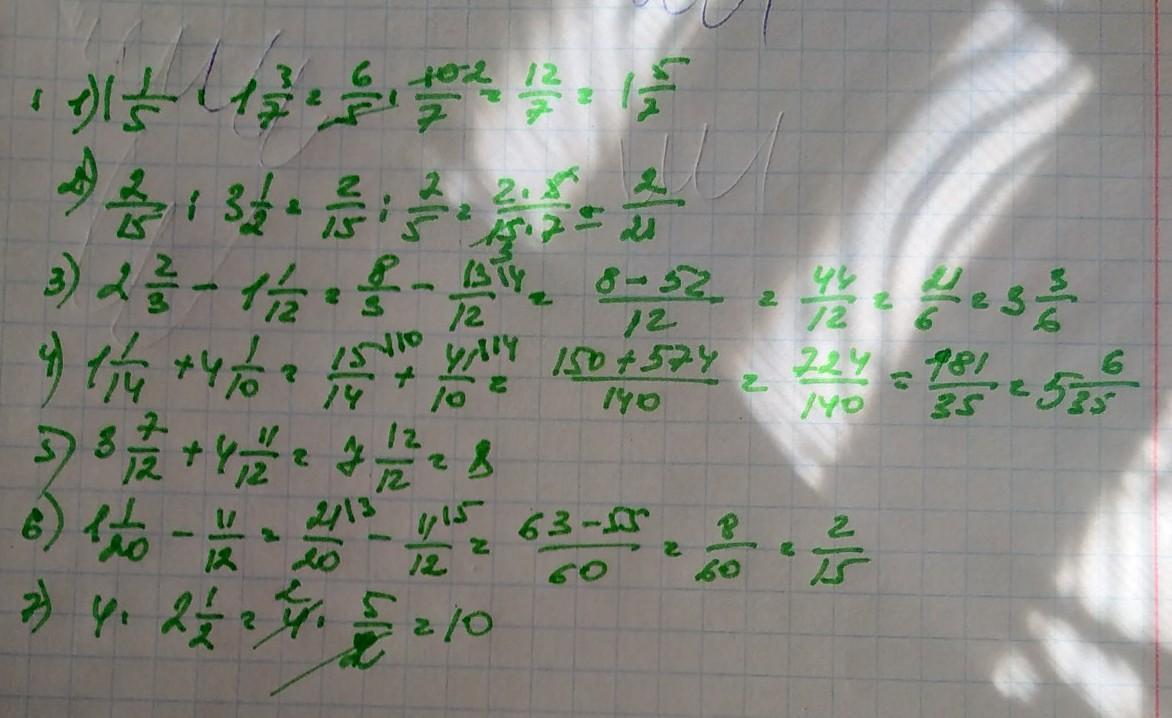 1) 1 1/5 · 1 3/7 = 6/5 · 10 2/7 = 12/7 = 1 5/7
2) 2/15 : 3 1/2 = 2/15 : 7/5 = 2·5/15·7 3 = 2/21
3) 2 2/3 - 1 1/12 = 8/3 - 13\4/12 = 8-52/12 = 44/12 = 21/6 = 3 3/6
4) 1 1/14 + 4 1/10 = 15\10/14 + 41\14/10 = 150+574/140 = 724/140 = 181/35 = 5 6/35
5) 3 7/12 + 4 11/12 = 7 12/12 = 8
6) 1 1/20 - 11/12 = 21\3/20 - 11\5/12 = 63-55/60 = 8/60 = 2/15
7) 4 · 2 1/2 = 4 2 · 5/2 = 10